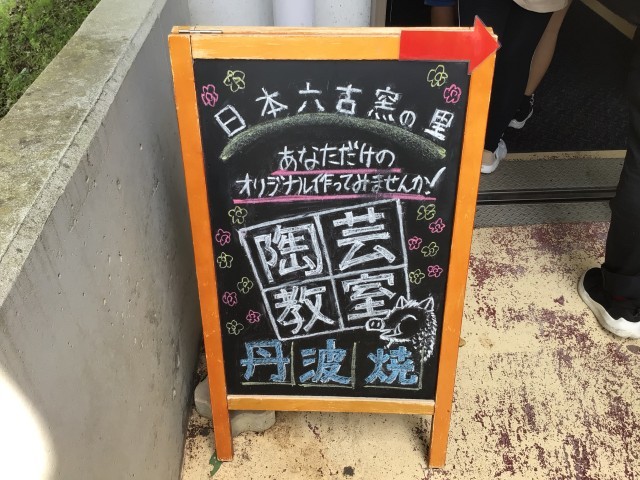 日本六古窯の里
あなただけの
オリジナル作ってみませんか!
陶芸
教室
丹波焼